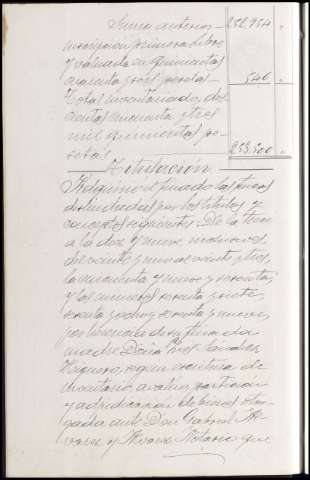 Suma anterior 252,954 "
inscripcion primera libre
y valuada en quinientas
cuarenta y seis pesetas 546 "
Total inventariado, dos
cientas cincuenta y tres
mil quinientas pe-
setas 253,500 "
Titulación
Adquirió el finado las fincas
deslindadas por los titulos y
conceptos siguientes: De la
a la diez y nueve inclusives,
del veinte y uno al veinte y tres,
la cincuenta y nueve y sesenta,
y los numeros sesenta y siete,
sesenta y ocho y sesenta y nueve,
por herencia de su finada
madre Doña
segun escritura de
inventario avaluo, particion
y adjudicacion de bienes otor-
gada ante Don Gabriel Al-
varez y Alvarez Notario que